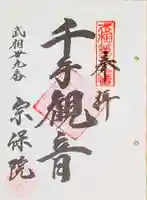 奉拝
千手観音
武相廿九番
宗保院